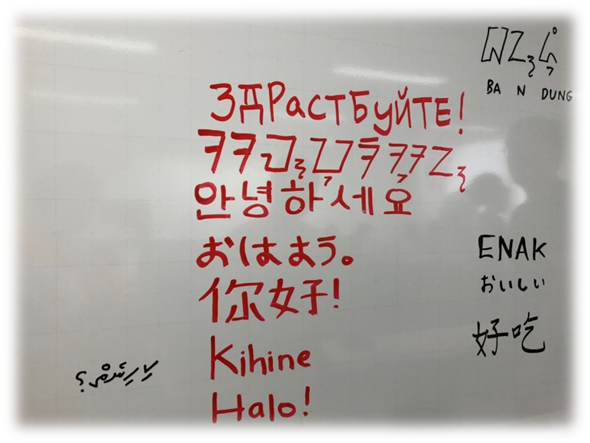 ЗДРаСТБуЙТЕ!
안녕하세요
おはよう。
你好!
Kihine
Halo!
ᮘᮔ᮪ᮓᮥᮀ
BA N DUNG
ENAK
おいしい
好吃